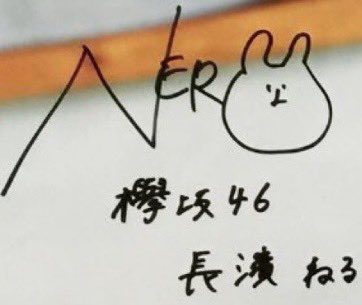 NERO
欅坂46
長濱ねる